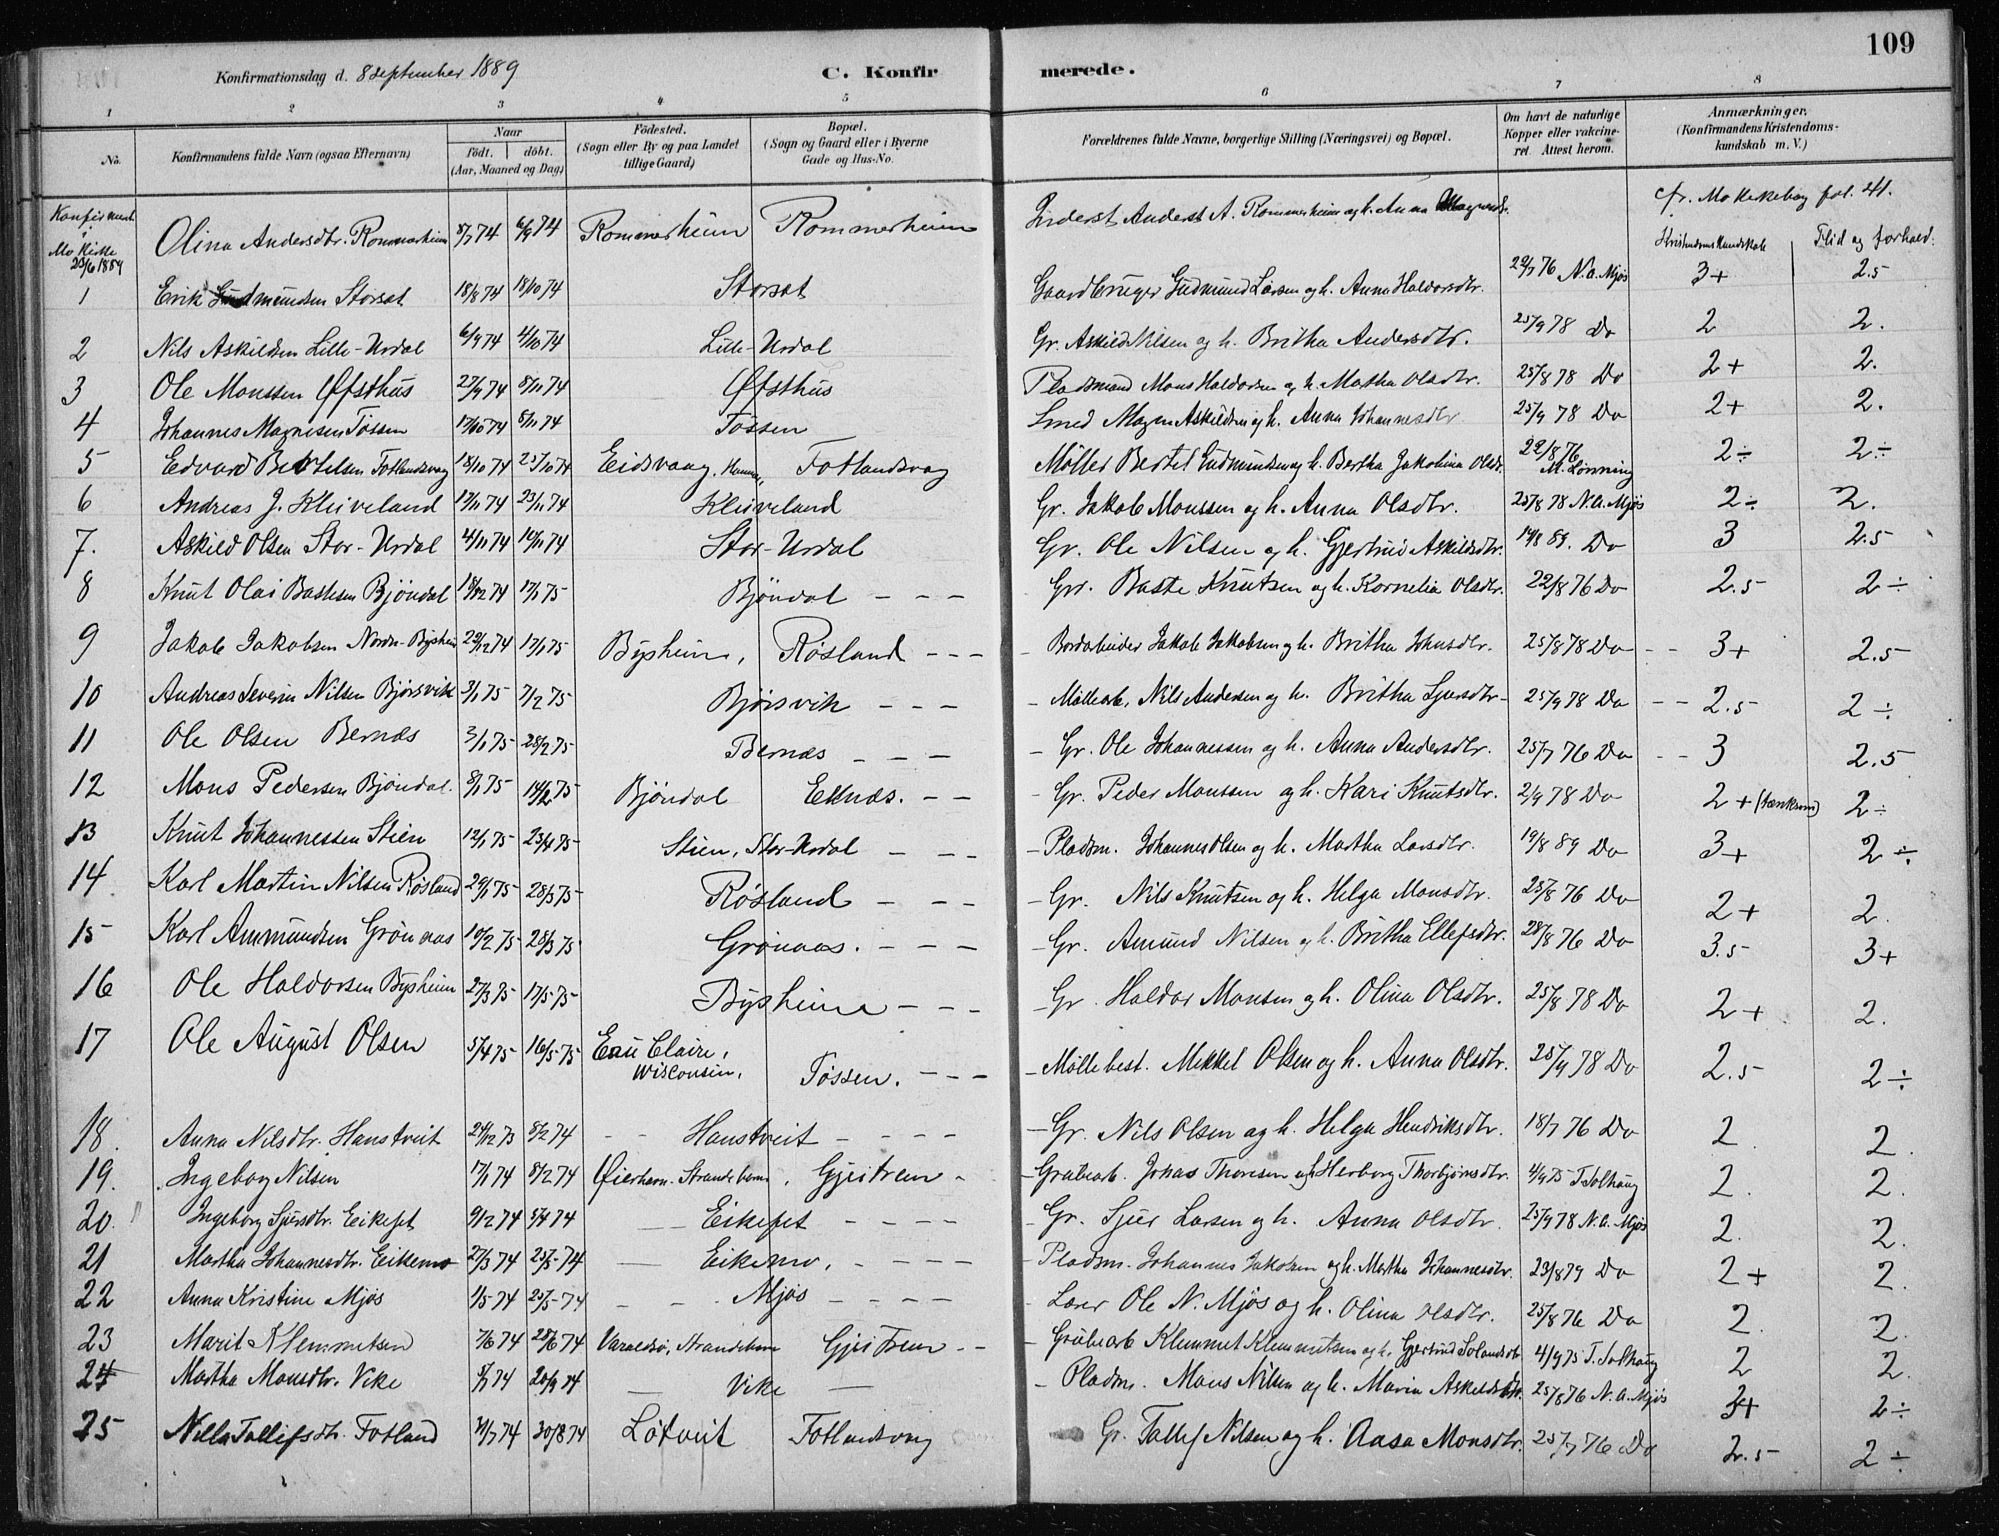 109
Konfirmationsdag d. 8 September 1889 C. Konfirmerede.
1 2 3 4 5 6 7 8
No. Konfirmandens fulde Navn (ogsaa Efternavn) Naar födt. döbt. (Aar, Maaned og Dag) Födested. (Sogn eller By og paa Landet tillige Gaard) Bopæl. (Sogn og Gaard eller i Byerne Gade og Hus-No. Forældrenes fulde Navne, borgerlige Stilling (Næringsvei) og Bopæl. Om havt de naturlige Kopper eller vakcineret. Attest herom. Anmærkninger. (Konfirmandens Kristendomskundskab m. V.)
cfr. Mo Kirkebog fol. 41.
Kristendomskundskab Flid og forhold.
Konfirmert i Mo Kirke 23/6 1889 Olina Andersdtr. Rommerheim 8/7 74 6/9 74 Rommerheim Rommerheim Inderst Anders A. Rommerheim og h. Anna
1 Erik Gudmundsen Storset 18/8 74 18/10 74 Storset Gaardbruger Gudmund Larsen og h. Anna Haldorsdtr. 29/7 76 N. A. Mjøs 3+ 2.5
2 Nils Askildsen Lille-Urdal 6/9 74 4/10 74 Lille-Urdal Gr. Askild Nilsen og h. Britha Andersdtr. 25/9 78 Do 2 2.
3 Ole Monssen Øfsthus 27/9 74 8/11 74 Øfsthus Pladsmand Mons Haldorsen og h. Martha Olsdtr. 25/8 78 Do 2+ 2.
4 Johannes Magnesen Tøssen 17/10 74 8/11 74 Tøssen Smed Magne Askildsen og h. Anna Johannesdtr 25/9 78 Do 2+ 2.
5 Edvard Bertelsen Fotlandsvag 18/10 74 25/10 74 Eidsvaag, Hamre, Fotlandsvag Møller Bertel Gudmundsen og h. Bertha Jakobina Olsdtr. 22/8 76 M. Lønning 2÷ 2÷
6 Andreas J. Kleiveland 17/11 74 23/11 74 Kleiveland Gr. Jakob Monssen og h. Anna Olsdtr. 25/8 78 N. A. Mjøs 2÷ 2.
7. Askild Olsen Stor-Urdal 4/11 74 16/11 74 Stor-Urdal Gr. Ole Nilsen og h. Gjertrud Askildsdtr. 19/8 89. Do 3 2.5
8 Knut Olai Bastesen Bjöndal 18/12 74 17/1 75 Bjöndal - - - Gr. Baste Knutsen og h. Kornelia Olsdtr. 22/8 76 Do 2.5 2÷
9 Jakob Jakobsen Nordre-Bysheim 29/12 74 17/1 75 Bysheim, Røsland - - - Bordarbeider Jakob Jakobsen og h. Britha Johnsdtr. 25/8 78 Do - - 3+ 2.5
10 Andreas Severin Nilsen Bjørsvik 3/1 75 7/2 75 Bjørsvik - - - - Møllearb. Nils Andersen og h. Britha Sjursdtr. 25/9 78 Do - - 2.5 2÷
11 Ole Olsen Bernæs 3/1 75 28/2 75 Bernæs - - - - Gr. Ole Johannessen og h. Anna Andersdtr. 25/7 76 Do - - 3 2.5
12 Mons Pedersen Bjöndal. 8/1 75 14/2 75 Bjöndal Eknæs. - - - Gr. Peder Monssen og h. Kari Knutsdtr. 2/9 78 Do 2+ (tænksom) 2÷
13 Knut Johannessen Stien 12/1 75 23/4 75 Stien, Stor-Urdal - - - - Pladsm. Johannes Olsen og h. Martha Larsdtr. 19/8 89 Do 3+ 2÷
14 Karl Martin Nilsen Røsland 29/1 75 28/3 75 Røsland - - - - Gr. Nils Knutsen og h. Helga Monsdtr. 25/8 76 Do 2+ 2.
15 Karl Ammundsen Grönaas 10/2 75 28/3 75 Grönaas. - - - - Gr. Amund Nilsen og h. Britha Ellefsdtr. 28/8 76 Do 3.5 3+
16 Ole Haldorsen Bysheim 27/3 75 17/5 75 Bysheim - - - - Gr. Haldor Monsen og h. Olina Olsdtr. 25/8 78 Do 2+ 2.
17 Ole August Olsen 5/4 75 16/5 75 Eau Claire, Wisconsin. Tøssen. - - - - Møllebest. Mikkel Olsen og h. Anna Olsdtr. 25/9 78 Do 2.5 2÷
18. Anna Nilsdtr. Hanstveit 24/12 73 8/2 74 - - Hanstveit - - - - - Gr. Nils Olsen og h. Helga Hendriksdtr. 18/7 76 Do 2. 2.
19. Ingeborg Nilsen 17/1 74 8/2 74 Øierhavn. Strandebarm. Gjeitrem - - Grubearb. Jonas Thorsen og h. Herborg Thorbjørnsdtr. 4/9 75 T. Solhaug 2. 2.
20. Ingeborg Sjursdtr. Eikefet 9/2 74 5/4 74 - Eikefet - - - - Gr. Sjur Larsen og h. Anna Olsdtr. 25/9 78 N. A. Mjøs 2. 2.
21 Martha Johannesdtr. Eikemo 27/3 74 25/5 74 - Eikemo, - - - - - Pladsm. Johannes Jakobsen og h. Martha Johannesdtr. 23/8 79 Do 2+ 2.
22 Anna Kristine Mjøs 1/5 74 25/5 74 - - Mjøs - - - - - Lærer Ole N. Mjøs og h. Olina Olsdtr. 25/8 76 Do 2. 2.
23 Marit Klemmetsen 7/6 74 28/6 74 Varaldsö, Strandebarm Gjeitrem - - - Grubearb Klemmet Klemmetsen og h. Gjertrud 4/9 75 T. Solhaug 2 2.
24 Martha Monsdtr. Vike 5/7 74 20/9 74 - Vike - - Pladsm. Mons Nilsen og h. Maria Askildsdtr. 25/8 76 N. A. Mjøs 3+ 2÷
25 Nilla Tollefsdtr. Fotland 31/7 74 30/8 74 Lötveit Fotlandsvag Gr. Tollef Nilsen og h. Aasa Monsdtr. 25/7 76 Do 2.5 2÷